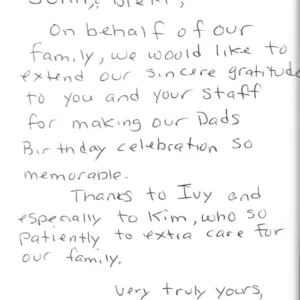 On behalf of our
family, we would like to
extend our sincere gratitude
to you and your staff
for making our Dads
Birthday celebration so
memorable.
Thanks to Ivy and
especially to Kim, who so
patiently to extra care for
our family.
Very truly yours,